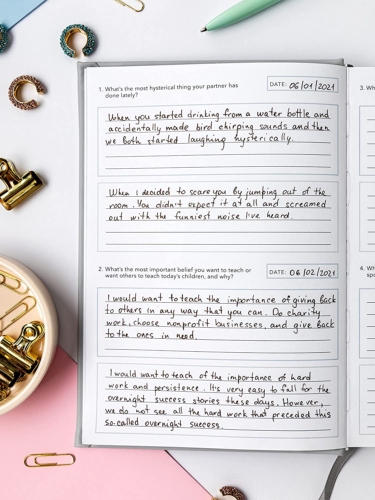 1. What's the most hysterical thing your partner has
done lately?
DATE: 06/01/2021
When you started drinking from a water bottle and
accidentally made bird chirping sounds and then
we both started laughing hysterically.
When I decided to scare you by jumping out of the
room. You didn't expect it at all and screamed
out with the funniest noise I've heard.
2. What's the most important belief you want to teach or
want others to teach today's children, and why?
DATE: 06/02/2021
I would want to teach the importance of giving back
to others in any way that you can. Do charity
work, choose nonprofit businesses, and give back
to the ones in need.
I would want to teach of the importance of hard
work and persistence. It's very easy to fall for the
overnight success stories these days. However,
we do not see all the hard work that preceded this
so-called overnight success.
3. Wh
4. Wh